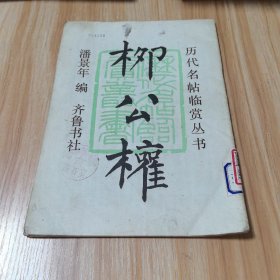 历代名帖临赏丛书
柳公權
潘景年 编 齐鲁书社